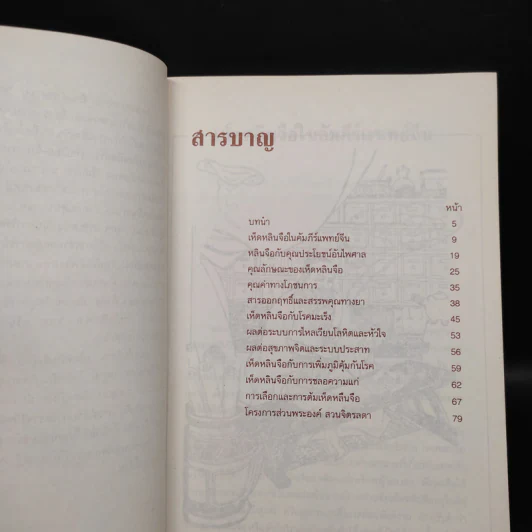 สารบาญ
หน้า
บทนำ 5
เห็ดหลินจือในคัมภีร์แพทย์จีน 9
หลินจือกับคุณประโยชน์อันไพศาล 19
คุณลักษณะของเห็ดหลินจือ 25
คุณค่าทางโภชนการ 35
สารออกฤทธิ์และสรรพคุณทางยา 38
เห็ดหลินจือกับโรคมะเร็ง 45
ผลต่อระบบการไหลเวียนโลหิตและหัวใจ 53
ผลต่อสุขภาพจิตและระบบประสาท 56
เห็ดหลินจือกับการเพิ่มภูมิคุ้มกันโรค 59
เห็ดหลินจือกับการชลอความแก่ 62
การเลือกและการต้มเห็ดหลินจือ 67
โครงการส่วนพระองค์ สวนจิตรลดา 79